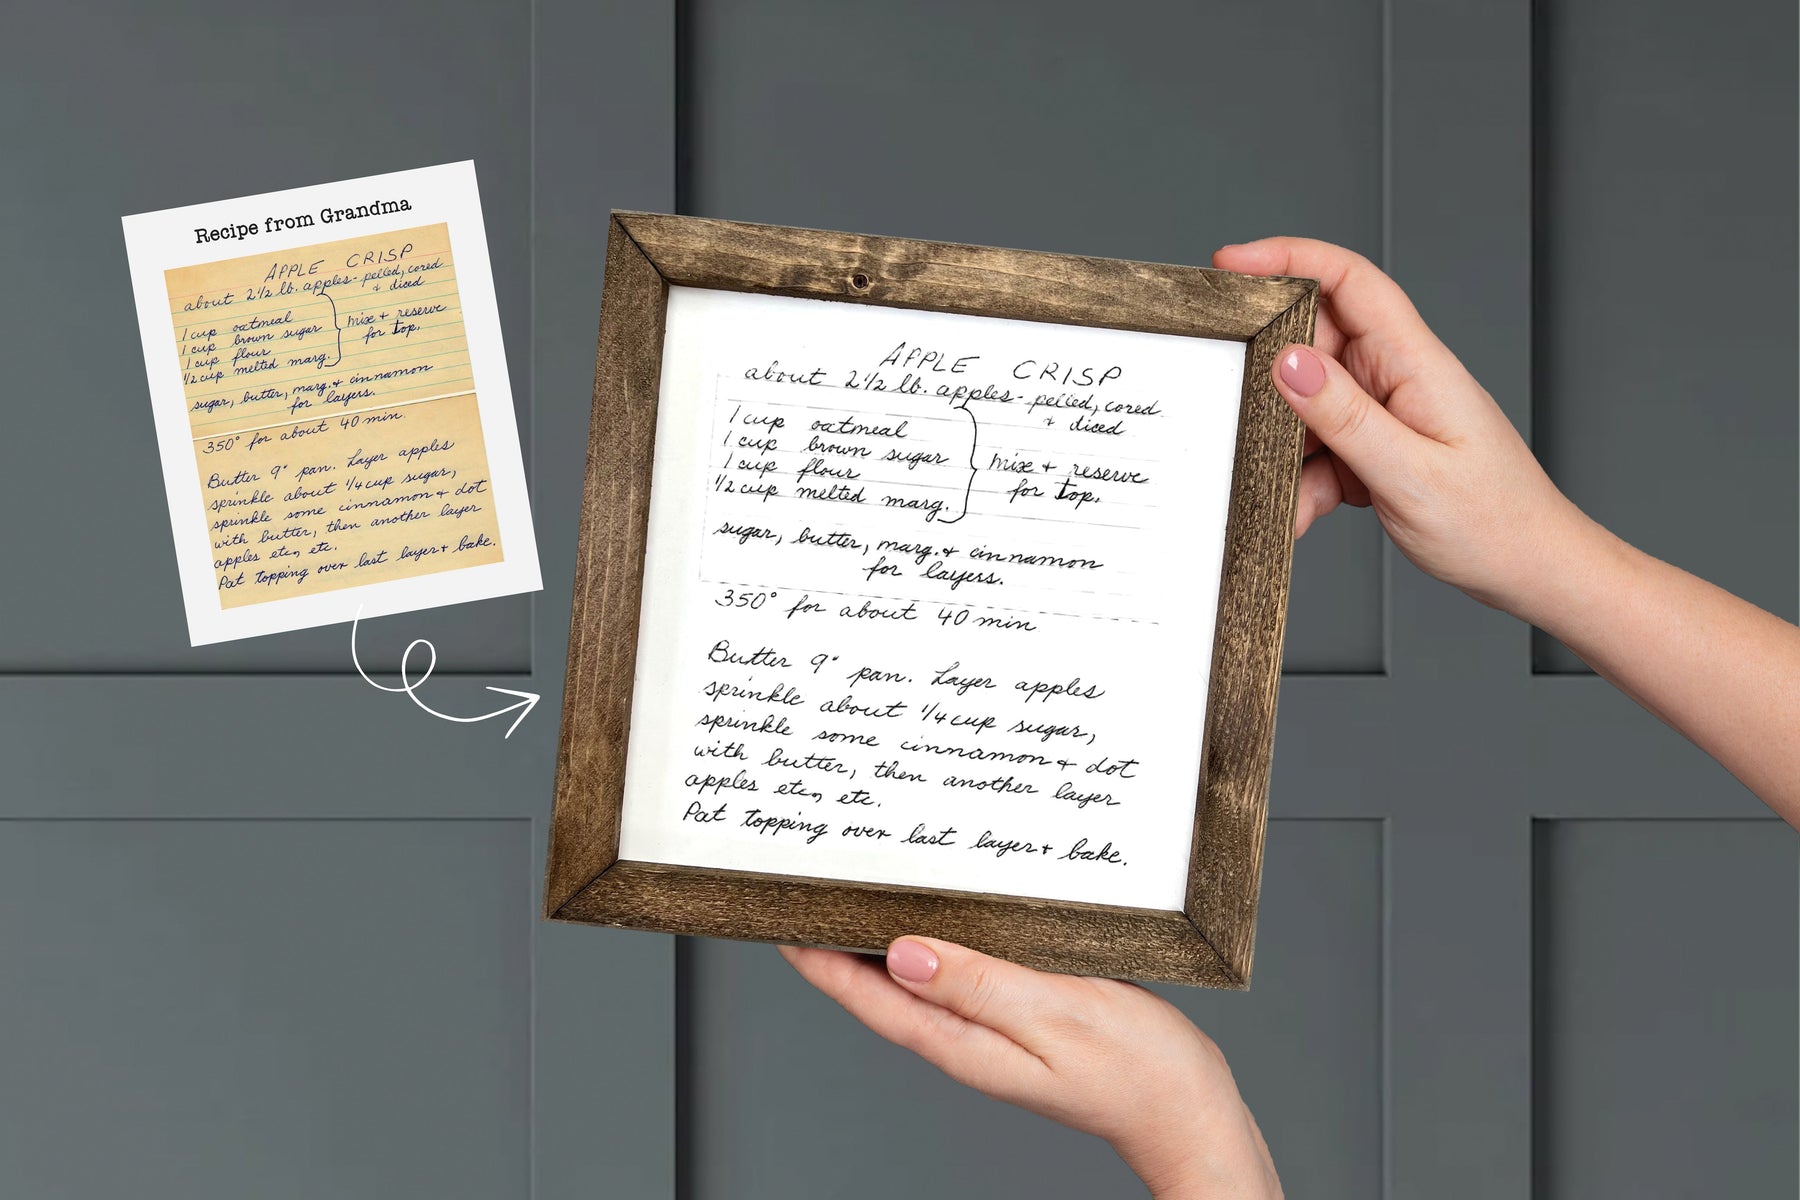 Recipe from Grandma
APPLE CRISP
about 2 1/2 lb. apples - pelled, cored
+ diced
1 cup oatmeal
1 cup brown sugar
1 cup flour
1/2 cup melted marg.
mix + reserve
for top.
sugar, butter, marg. + cinnamon
for layers.
350° for about 40 min.
Butter 9" pan. Layer apples
sprinkle about 1/4 cup sugar,
sprinkle some cinnamon + dot
with butter, then another layer
apples etc, etc.
Pat topping over last layer + bake.
APPLE CRISP
about 2 1/2 lb. apples - pelled, cored
+ diced
1 cup oatmeal
1 cup brown sugar
1 cup flour
1/2 cup melted marg.
mix + reserve
for top.
sugar, butter, marg. + cinnamon
for layers.
350° for about 40 min
Butter 9" pan. Layer apples
sprinkle about 1/4 cup sugar,
sprinkle some cinnamon + dot
with butter, then another layer
apples etc, etc.
Pat topping over last layer + bake.